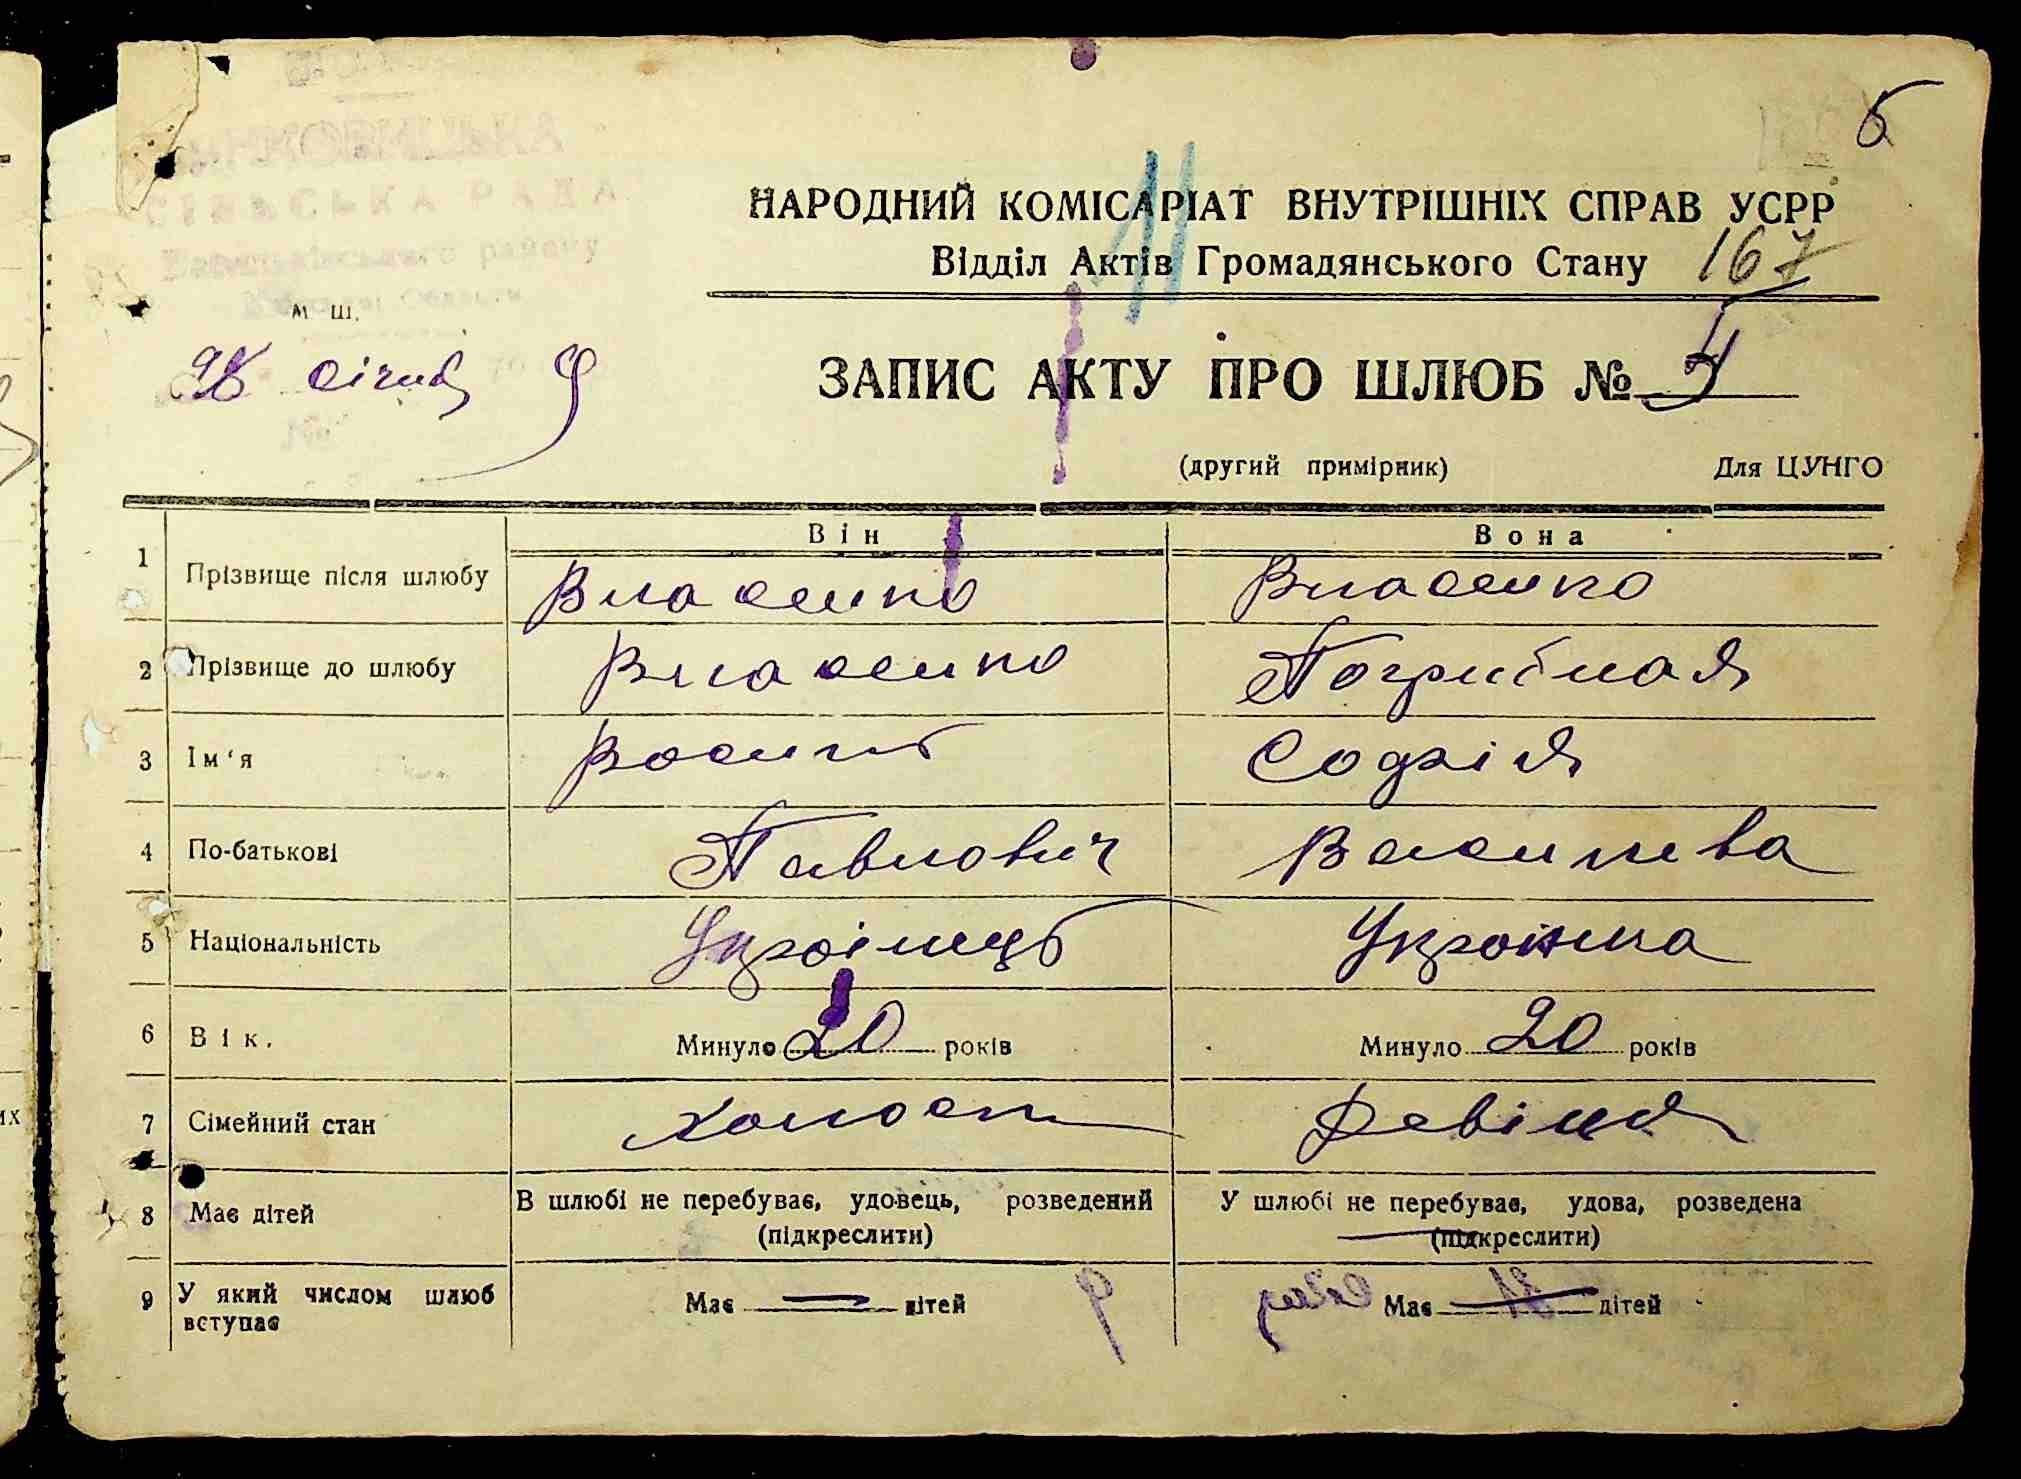 6
НАРОДНИЙ КОМІСАРІАТ ВНУТРІШНІХ СПРАВ УСРР
СІЛЬСЬКА РАДА
району
11
Відділ Актів Громадянського Стану 167
м ш.
січня
ЗАПИС АКТУ ПРО ШЛЮБ №
(другий примірник) Для ЦУНГО
Він Вона
1 Прізвище після шлюбу Власенко Власенко
2 Прізвище до шлюбу Власенко Погрибная
3 Ім'я Василь Софія
4 По-батькові Павлович Василева
5 Національність Українець Українка
6 Вік. Минуло 20 років Минуло 20 років
7 Сімейний стан холост Девіця
8 Має дітей В шлюбі не перебуває, удовець, розведений У шлюбі не перебуває, удова, розведена
(підкреслити) (підкреслити)
9 У який числом шлюб вступає Має — дітей Має — дітей